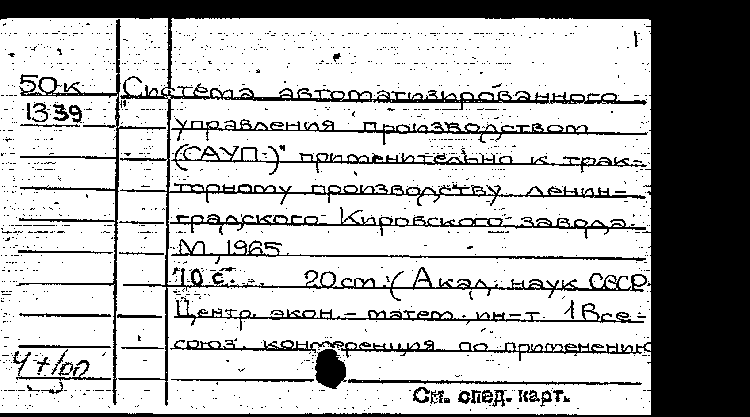 1
50к Система автоматизированного
1339 управления производством
(САУП)" применительно к трак-
торному производству Ленин-
градского Кировского завода.
М, 1965
10 с. 20 cm. (Акад. наук СССР
Центр. экон.-матем. ин-т. 1 Все-
союз. конференция по применению
См. след. карт.